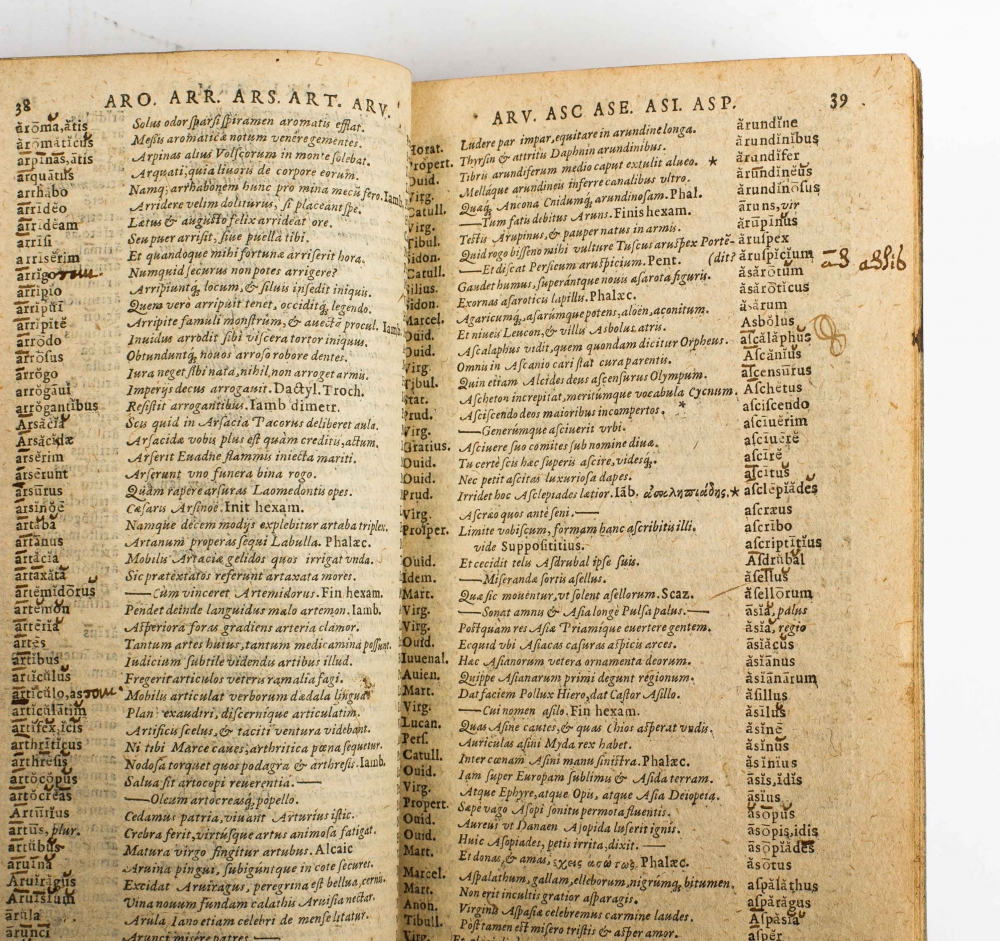 38
ARO. ARR. ARS. ART. ARV.
ărōmă, ătis Solus odor sparsi spiramen aromatis efflat.
ărōmătĭcŭs Messis aromaticæ notum veneré gementes.
arpīnās, ātis Arpinas alius Volscorum in monte solebat.
arquātŭs Arquati; quia liuoris de corpore eorum.
arrhăbo Namq; arrhabonem hunc pro mina mecū fero. Iamb.
arrīdĕo Arridere velim doliturus, si placeant spe.
arrīdĕam Lætus & augusto felix arrideat ore.
arrīsi Seu puer arrisit, siue puella tibi.
arrīsĕrim Et quandoque mihi fortunæ arriserit hora.
arrĭgo Numquid securus non potes arrigere?
arrĭpĭo Arripiuntq; locum, & siluis insedit iniquis.
arrĭpŭi Quem vero arripuit tenet, occiditq; legendo.
arrĭpĭtĕ Arripite famuli monstrum, & auectā procul. Iamb.
arrōdo Inuidus arrodit sibi viscera tortor iniquus.
arrōsus Obtunduntq; nouos arroso robore dentes.
arrŏgo Iura neget sibi nata, nihil non arroget armis.
arrŏgāui Imperijs decus arrogauit. Dactyl. Troch.
arrŏgantĭbus Resistit arrogantibus. Iamb dimetr.
Arsăcĭa Scis quid in Arsacia Pacorus deliberet aula.
Arsăcĭdæ Arsacidæ vobis plus est quàm creditis, actum.
arsĕrim Arserit Euadne flammis iniecta mariti.
arsērunt Arserunt vno funera bina rogo.
arsūrus Quàm rapere arsuras Laomedontis opes.
arsĭnŏē Cæsaris Arsinoë. Init hexam.
artăba Namque decem modijs explebitur artaba triplex.
artānus Artanum properas sequi Labulla. Phalæc.
artăcĭa Mobilis Artaciæ gelidos quos irrigat vnda.
artaxăta Sic prætextatos referunt artaxata mores.
artĕmĭdōrus —Cùm vinceret Artemidorus. Fin hexam.
artĕmon Pendet deinde languidus malo artemon. Iamb.
artērĭa Asperiora foras gradiens arteria clamor.
artēs Tantum artes huius, tantum medicamina possunt.
artĭbus Iudicium subtile videndis artibus illud.
artĭcŭlus Fregerit articulos veteris ramalia fagi.
artĭcŭlo, as Mobilis articulat verborum dædala lingua
artĭcŭlātim Planè exaudiri, discernique articulatim.
artĭfex, ĭcis Artificis scelus, & taciti ventura videbant.
arthrītĭcus Ni tibi Marce caues, arthritica pœna sequetur.
arthrēsis Nodosa torquet quos podagra & arthresis. Iamb.
artŏcŏpus Salua sit artocopi reuerentia.—
artŏcrĕas —Oleum artocreasq; popello.
Artūrĭus Cedamus patria, viuant Arturius istic.
artūs, plur. Crebra ferit, virtusque artus animosa fatigat.
artŭbus Matura virgo fingitur artubus. Alcaic
aruīna Aruina pingui, subiguntque in cote secures.
Aruĭrăgus Excidat Aruiragus, peregrina est bellua,
Aruīsĭum Vina nouum fundam calathis Aruisia nectar.
ārŭla Arula Iano etiam celebri de mense litatur.
ārunci Arunci misere patres—
ARV. ASC ASE. ASI. ASP. 39
Horat. Ludere par impar, equitare in arundine longa. ărundĭne
Propert. Thyrsin & attritis Daphnin arundinibus. ărundĭnĭbus
Ouid. Tibris arundiferum medio caput extulit alueo. * ărundĭfer
Virg. Mellaque arundineis inferre canalibus vltro. ărundĭnĕus
Catull. Quæq; Ancona Cnidumq; arundinosam. Phal. ărundĭnōsus
Virg. —Tum fatis debitus Aruns. Finis hexam. ăruns, vir
Tibul. Testis Arupinus, & pauper natus in armis. ărupīnus
Sidon. Quid rogo bisseno mihi vulture Tuscus aruspex Porte- (dit? ăruspex
Catull. —Et discat Persicum aruspicium. Pent. ăruspĭcĭum as assib
Silius. Gaudet humus, superántque nouis asarota figuris. ăsărōtum
Sidon. Exornas asaroticis lapillis. Phalæc. ăsărōtĭcus
Marcel. Agaricumq; asarumque potens, aloën, aconitum. ăsărum
Ouid. Et niueis Leucon, & villis Asbolus atris. Asbŏlus
Ouid. Ascalaphus vidit, quem quondam dicitur Orpheus. ascălăphus
Virg. Omnis in Ascanio cari stat cura parentis. Ascănĭus
Tibul. Quin etiam Alcides deus ascensurus Olympum. ascensūrus
Stat. Ascheton increpitat, meritúmque vocabula Cycnum. Aschĕtus
Prud. Asciscendo deos maioribus incompertos. * asciscendo
Virg. —Generúmque asciuerit vrbi. ascīuĕrim
Gratius. Asciuere suo comites sub nomine diuæ. ascīuērĕ
Ouid. Tu certè scis hæc superis ascire, videsq;. ascīrĕ
Ouid. Nec petit ascitas luxuriosa dapes. ascītus
Prud. Irridet hoc Asclepiades lætior. Iāb. ἀσκληπιάδης. * asclēpĭădēs
Virg. Ascræo quos antè seni.— ascræus
Prosper. Limite vobiscum, formam hanc ascribitis illi. ascrībo
vide Supposititius. ascriptītĭus
Ouid. Et cecidit telis Asdrubal ipse suis. Asdrŭbal
Idem. —Miserandæ sortis asellus. ăsellus
Mart. Quæ sic mouentur, vt solent asellorum. Scaz. ăsellōrum
Virg. —Sonat amnis & Asia longè Pulsa palus.— āsĭa, palus
Virg. Postquam res Asiæ Priamique euertere gentem. ăsĭa, regio
Ouid. Ecquid vbi Asiacas casuras aspicis arces. ăsĭăcus
Iuuenal. Hæc Asianorum vetera ornamenta deorum. ăsĭānus
Auien. Quippe Asianarum primi degunt regionum. ăsĭānārum
Mart. Dat faciem Pollux Hiero, dat Castor Asillo. ăsillus
Virg. —Cui nomen asilo. Fin hexam. ăsīlus
Lucan. Quas Asinæ cautes, & quas Chios asperat vndis. ăsĭne
Pers. Auriculas asini Myda rex habet. ăsĭnus
Catull. Inter cœnam Asini manu sinistra. Phalæc. ăsĭnĭus
Ouid. Iam super Europam sublimis & Asida terram. ăsis, ĭdis
Virg. Atque Ephyre, atque Opis, atque Asia Deiopeia. āsĭus
Propert. Sæpe vago Asopi sonitu permota fluentis. āsōpus
Ouid. Aureus vt Danaen Asopida luserit ignis. āsōpis, idis
Ouid. Huic Asopiades, petis irrita, dixit.— āsōpĭădēs
Mart. Et donas, & amas, ἔχεις ἀσώτως. Phalæc. ăsōtus
Marcel. Aspalathum, gallam, elleborum, nigrúmq; bitumen. aspălăthus
Mart. Non erit incultis gratior asparagis. aspărăgus
Anon. Virginis Aspasiæ celebremus carmine laudes. Aspăsĭa
Tibull. Post tamen est misero tristis & asper amor. asper
Virg.